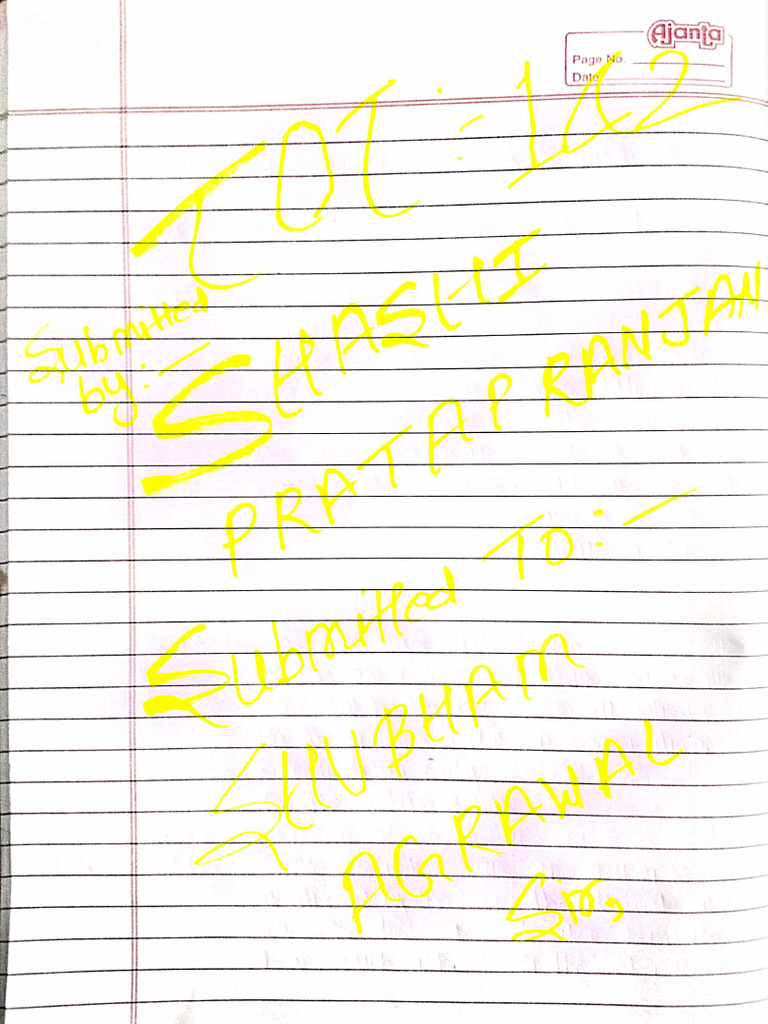 Ajanta
Page No.
Date
TOT :- 1&2
Submitted
by:-
SHASHI
PRATAP RANJAN
Submitted To:-
SHUBHAM
AGRAWAL
Sir,